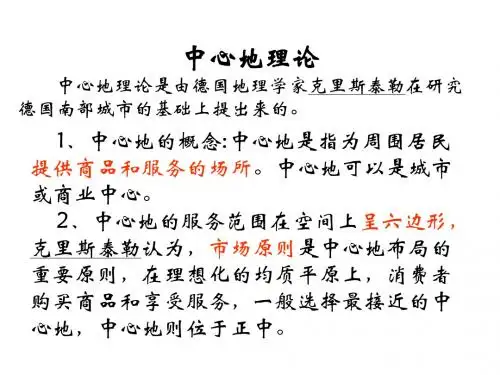 中心地理论
中心地理论是由德国地理学家克里斯泰勒在研究
德国南部城市的基础上提出来的。
1、中心地的概念:中心地是指为周围居民
提供商品和服务的场所。中心地可以是城市
或商业中心。
2、中心地的服务范围在空间上呈六边形，
克里斯泰勒认为，市场原则是中心地布局的
重要原则，在理想化的均质平原上，消费者
购买商品和享受服务，一般选择最接近的中
心地，中心地则位于正中。